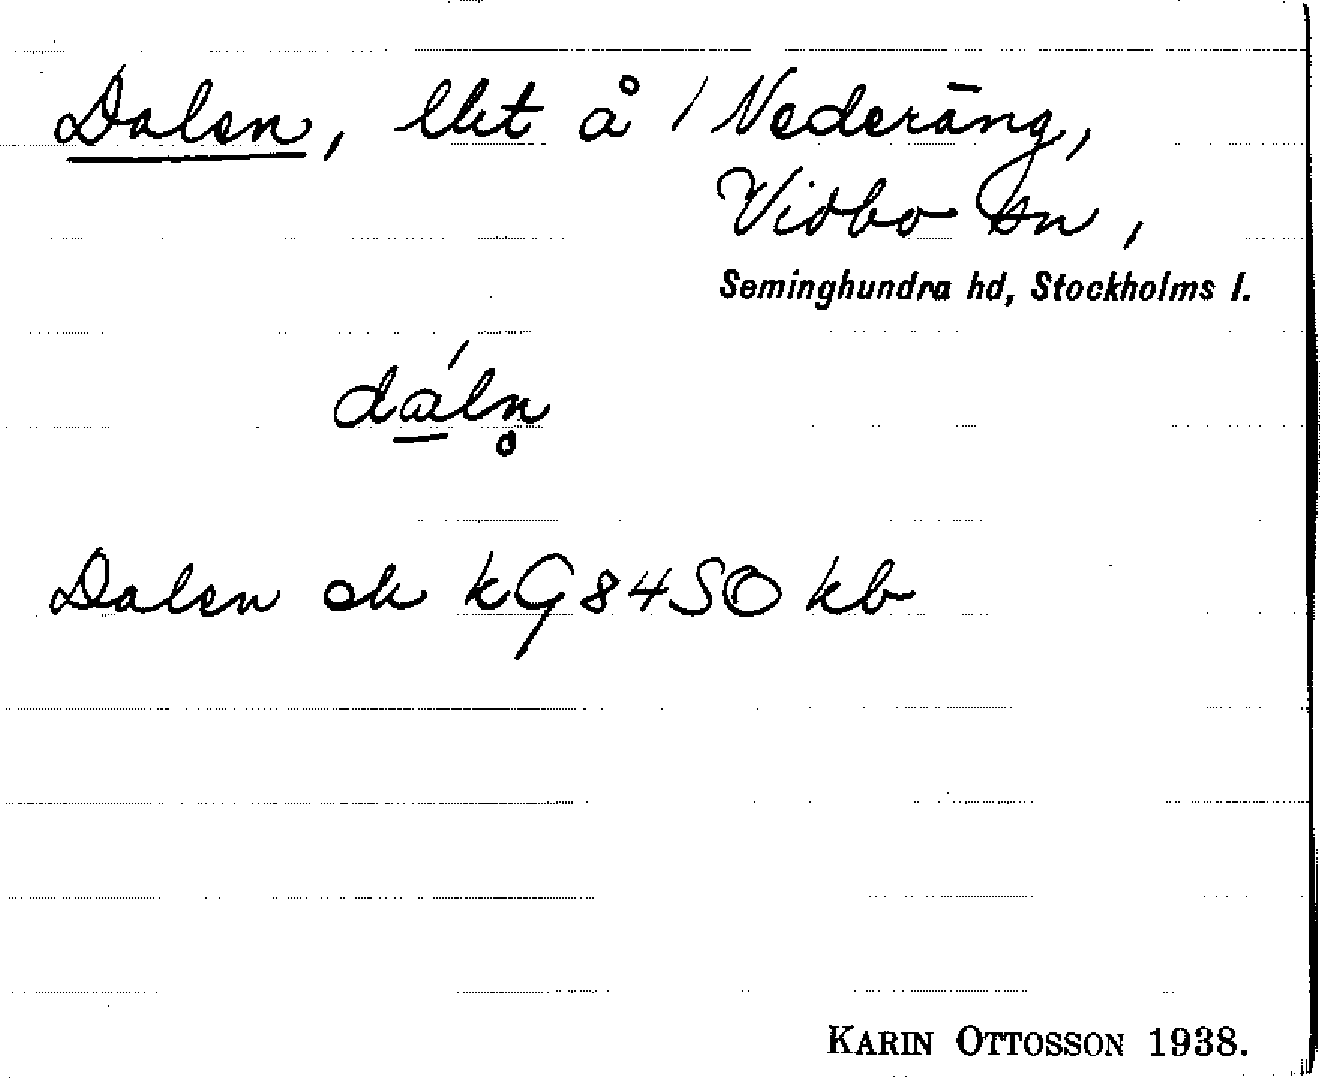 Dalen, llkt å / Nederäng,
Vidbo sn,
Seminghundra hd, Stockholms l.
dáln̥
Dalen ek kG84SO kb
KARIN OTTOSSON 1938.